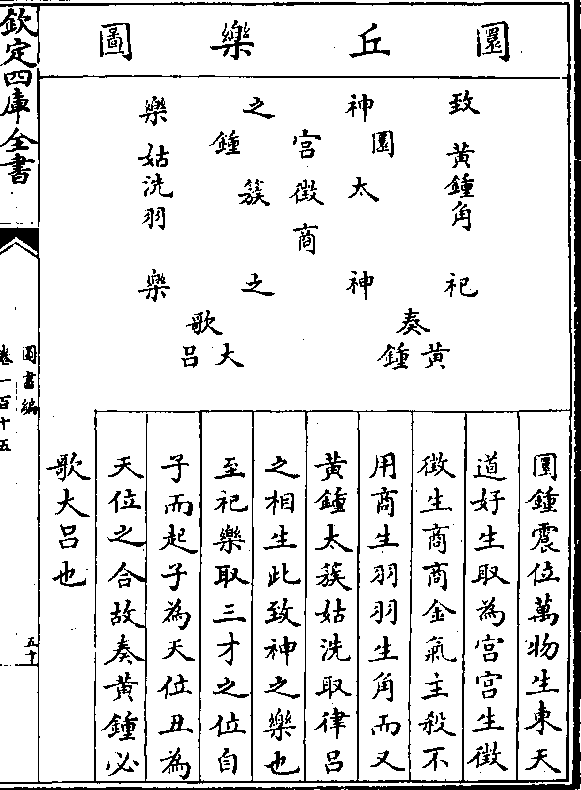 圜丘樂圖
致神之樂
黃鍾角
圜鍾宮
太簇徵
商
姑洗羽
祀神之樂
奏黃鍾
歌大呂
圜鍾震位萬物生東天
道好生取為宮宮生徵
徵生商商金氣主殺不
用商生羽羽生角而又
黃鍾太簇姑洗取律呂
之相生此致神之樂也
至祀樂取三才之位自
子而起子為天位丑為
天位之合故奏黃鍾必
歌大呂也
欽定四庫全書
圖書編
卷一百十五
五十